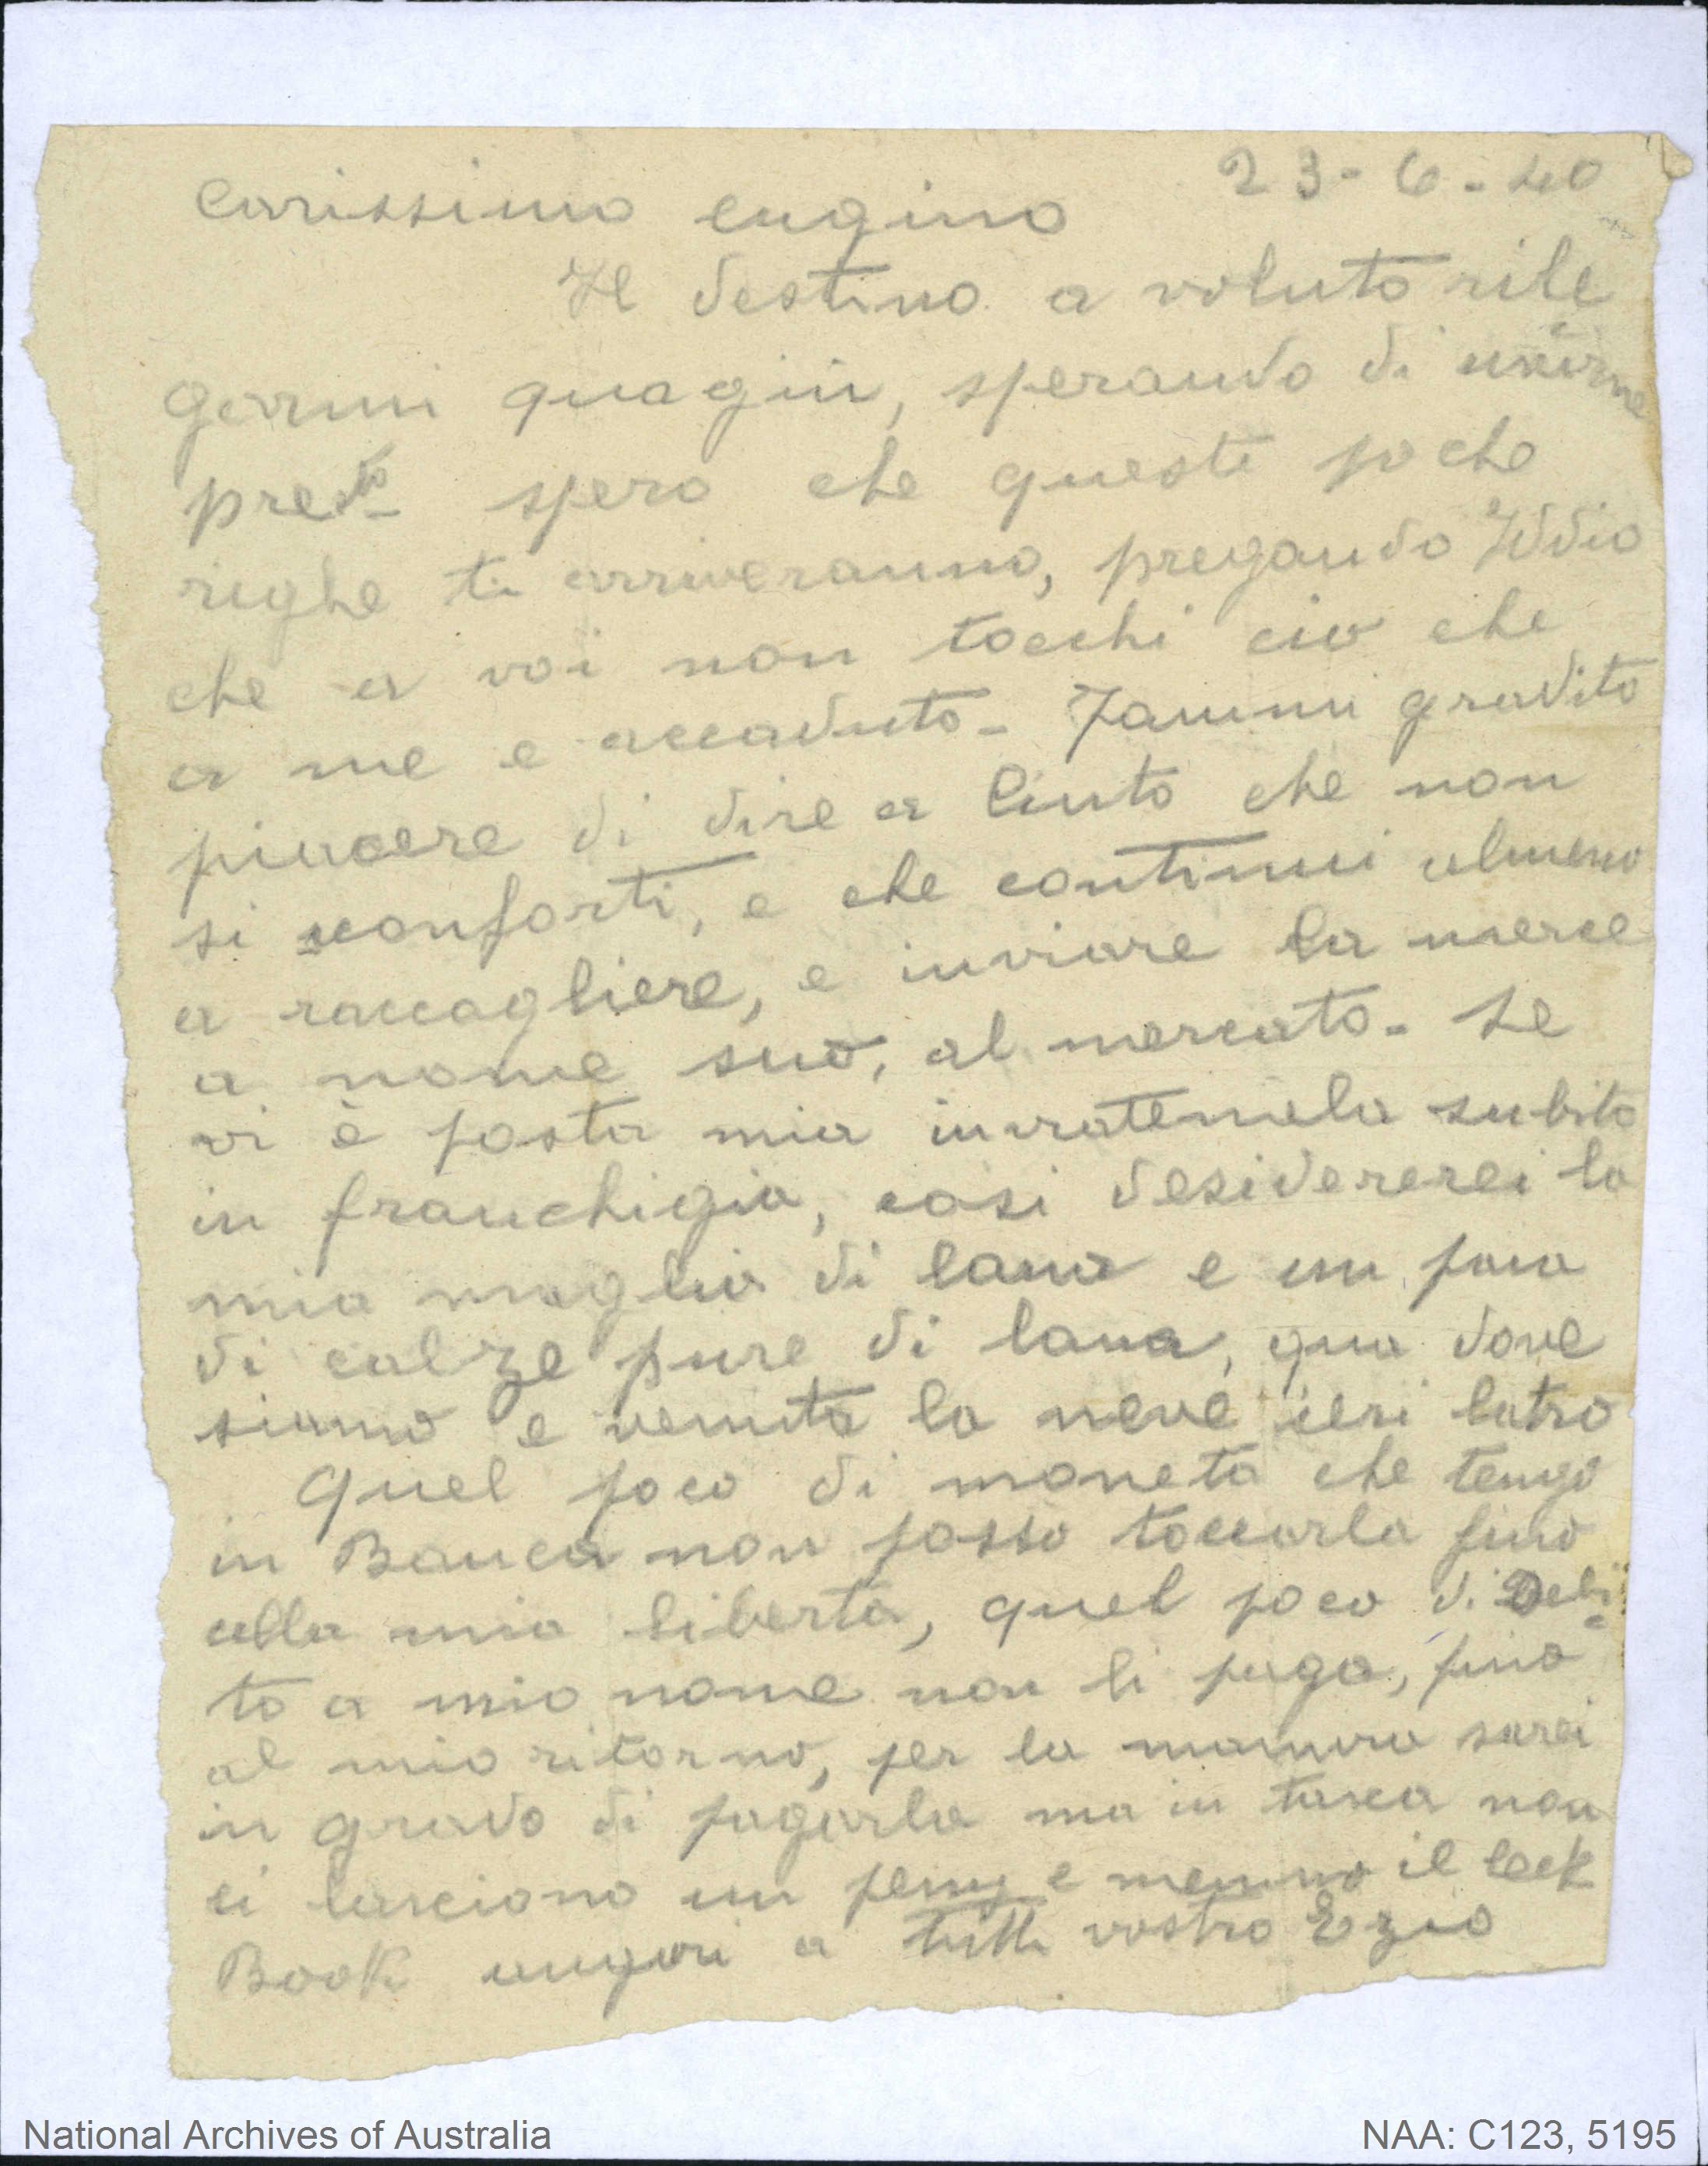 23-6-40
Carissimo eugino
Il destino a voluto rile
garmi quagiù, sperando di
presto spero che queste poche
righe ti arriveranno, pregando Iddio
che a voi non tocchi cio che
a me e accaduto- Fammi gradito
piacere di dire a Cinto che non
si sconforti, e che continui almeno
a raccogliere, e inviare la merce
a nome suo, al mercato- Se
vi è posta mia inviatemela subito
in franchigia, cosi desidererei la
mia maglia di lana e un paio
di calze pure di lana, qua dove
siamo e venuta la neve ieri latro
Quel poco di moneta che tengo
in Banca non posso toccarla fino
alla mia liberta, quel poco di Debi
to a mio nome non li pago, fino
al mio ritorno, per la sarei
in grado di pagarla ma in tasca non
ci lasciono un peny e menno il cek
Book auguri a tutti vostro Ezio
National Archives of Australia
NAA: C123, 5195